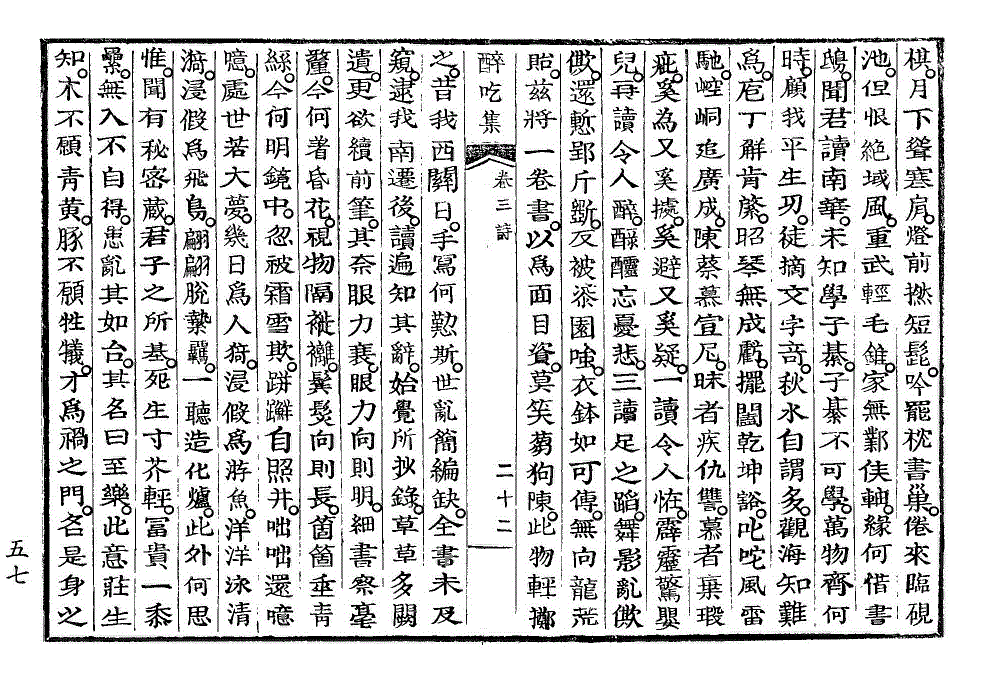 棋。月下聳寒肩。燈前撚短髭。吟罷枕書巢。倦來臨硯
池。但恨絕域風。重武輕毛錐。家無鄴侯軸。緣何借書
鴟。聞君讀南華。未知學子綦。子綦不可學。萬物齊何
時。顧我平生功。徒摘文字奇。秋水自謂多。觀海知難
爲。庖丁解肯綮。昭琴無成虧。擺闔乾坤豁。叱咜風雷
馳。崆峒追廣成。陳蔡慕宣尼。昧者疾仇讐。慕者棄瑕
疵。奚為又奚據。奚避又奚疑。一讀令人怪。霹靂驚嬰
兒。再讀令人醉。醁醽忘憂悲。三讀足之蹈。舞影亂僛
僛。還慙郢斤斲。反被漆園嗤。衣鉢如可傳。無向龍荒
貽。茲將一卷書。以爲面目資。莫笑蒭狗陳。此物輕擲
醉吟集 卷三詩 二十二
之。昔我西關日。手冩何懃斯。世亂簡編缺。全書未及
窺。逮我南遷後。讀遍知其辭。始覺所抄錄。草草多闕
遺。更欲續前筆。其奈眼力衰。眼力向則明。細書察毫
釐。今何著昏花。視物隔褷䙰。鬂髮向則長。箇箇垂青
絲。今何明鏡中。忽被霜雪欺。跰𨇤自照井。咄咄還噫
噫。處世若大夢。幾日爲人猗。浸假爲游魚。洋洋泳清
漪。浸假爲飛鳥。翩翩脫縶羈。一聽造化爐。此外何思
惟。聞有秘密藏。君子之所基。死生寸芥輕。冨貴一黍
纍。無入不自得。患亂其如台。其名曰至樂。此意莊生
知。木不願青黃。豚不願牲犧。才爲禍之門。名是身之
五七